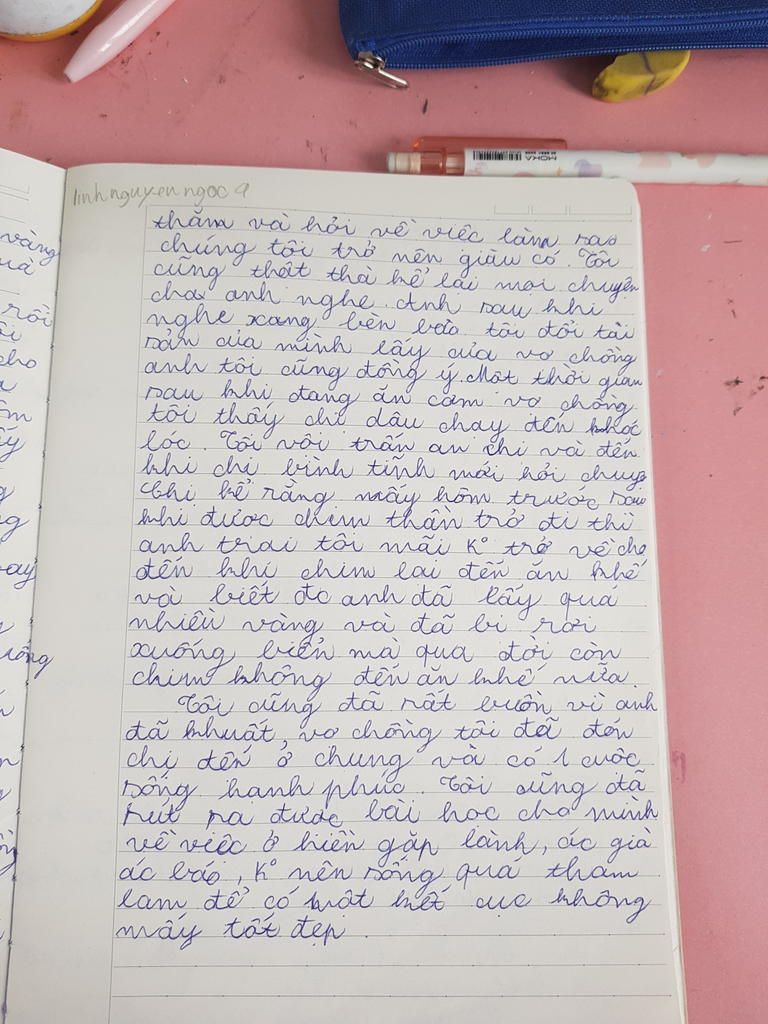 MOKA
linhnguyenngoc9
thăm và hỏi về việc làm sao
chúng tôi trở nên giàu có. Tôi
cũng thật thà kể lại mọi chuyện
cho anh nghe. Anh sau khi
nghe xong bèn bảo tôi đổi tài
sản của mình lấy của vợ chồng
anh tôi cũng đồng ý. Một thời gian
sau khi đang ăn cơm vợ chồng
tôi thấy chị dâu chạy đến khóc
lóc. Tôi vội trấn an chị và đến
khi chị bình tĩnh mới hỏi chuyện
Chị kể rằng mấy hôm trước sau
khi được chim thần trở đi thì
anh trai tôi mãi K° trở về cho
đến khi chim lại đến ăn khế
và biết đc anh đã lấy quá
nhiều vàng và đã bị rơi
xuống biển mà qua đời còn
chim không đến ăn khế nữa.
Tôi cũng đã rất buồn vì anh
đã khuất, vợ chồng tôi đã đón
chị đến ở chung và có 1 cuộc
sống hạnh phúc. Tôi cũng đã
rút ra được bài học cho mình
về việc ở hiền gặp lành, ác giả
ác báo, K° nên sống quá tham
lam để có một kết cục không
mấy tốt đẹp.